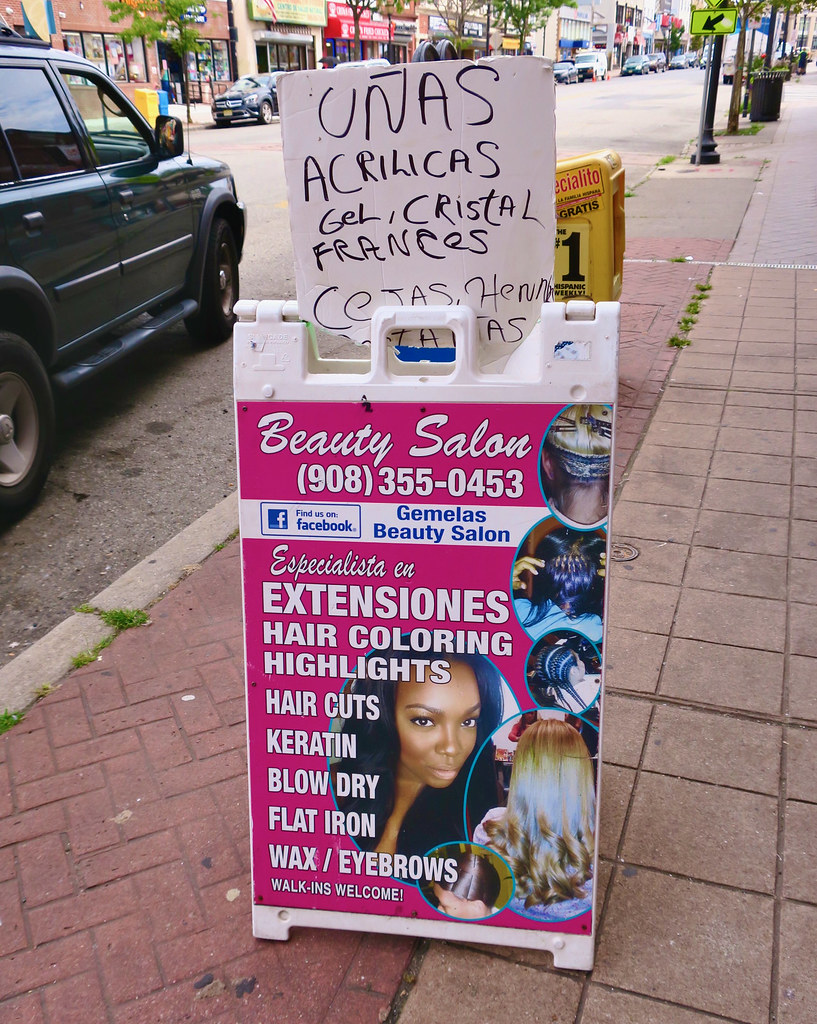 UÑAS
ACRILICAS
GEL, CRIStAL
FRANCes
CeJAS, Henn
ecialito
LA FAMILIA HISPANA
GRATIS
THE
#1
HISPANIC
WEEKLY!
Beauty Salon
(908) 355-0453
Find us on:
facebook
Gemelas
Beauty Salon
Especialista en
EXTENSIONES
HAIR COLORING
HIGHLIGHTS
HAIR CUTS
KERATIN
BLOW DRY
FLAT IRON
WAX / EYEBROWS
WALK-INS WELCOME!